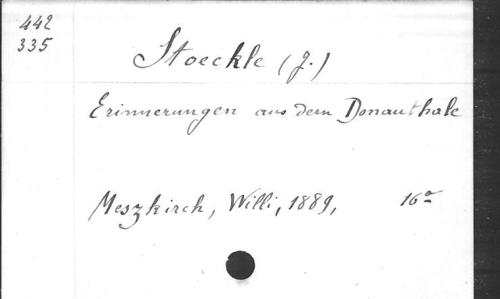 442
335
Stoeckle (J.)
Erinnerungen aus dem Donauthale
Meszkirch, Willi, 1889, 16º